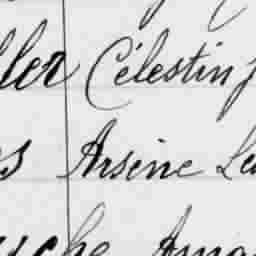 ller Célestin
s Arsène Le
sche Ama